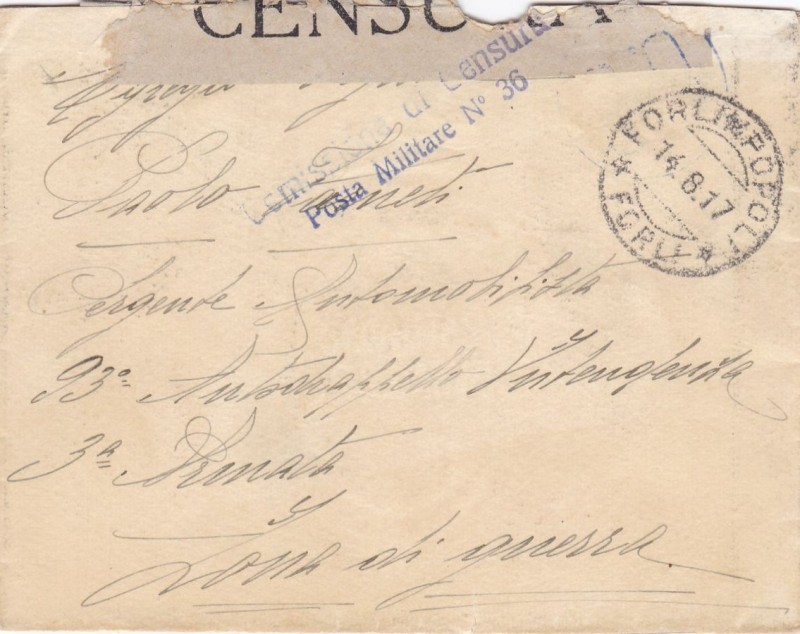 CENSURA
Commissione di Censura
Posta Militare N° 36
FORLIMPOPOLI
14.8.17
* FORLI *
Paolo
Sergente Automobilista
93° Autodrappello Intendenza
3ª Armata
Zona di guerra